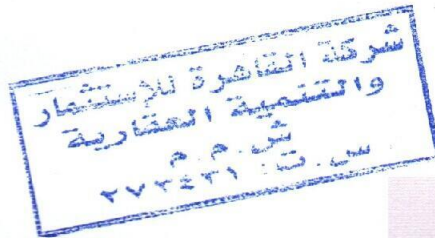 شركة القاهرة للإستثمار
والتنمية العقارية
ش.م.م
س.ت: ٢٧٢٤٣١